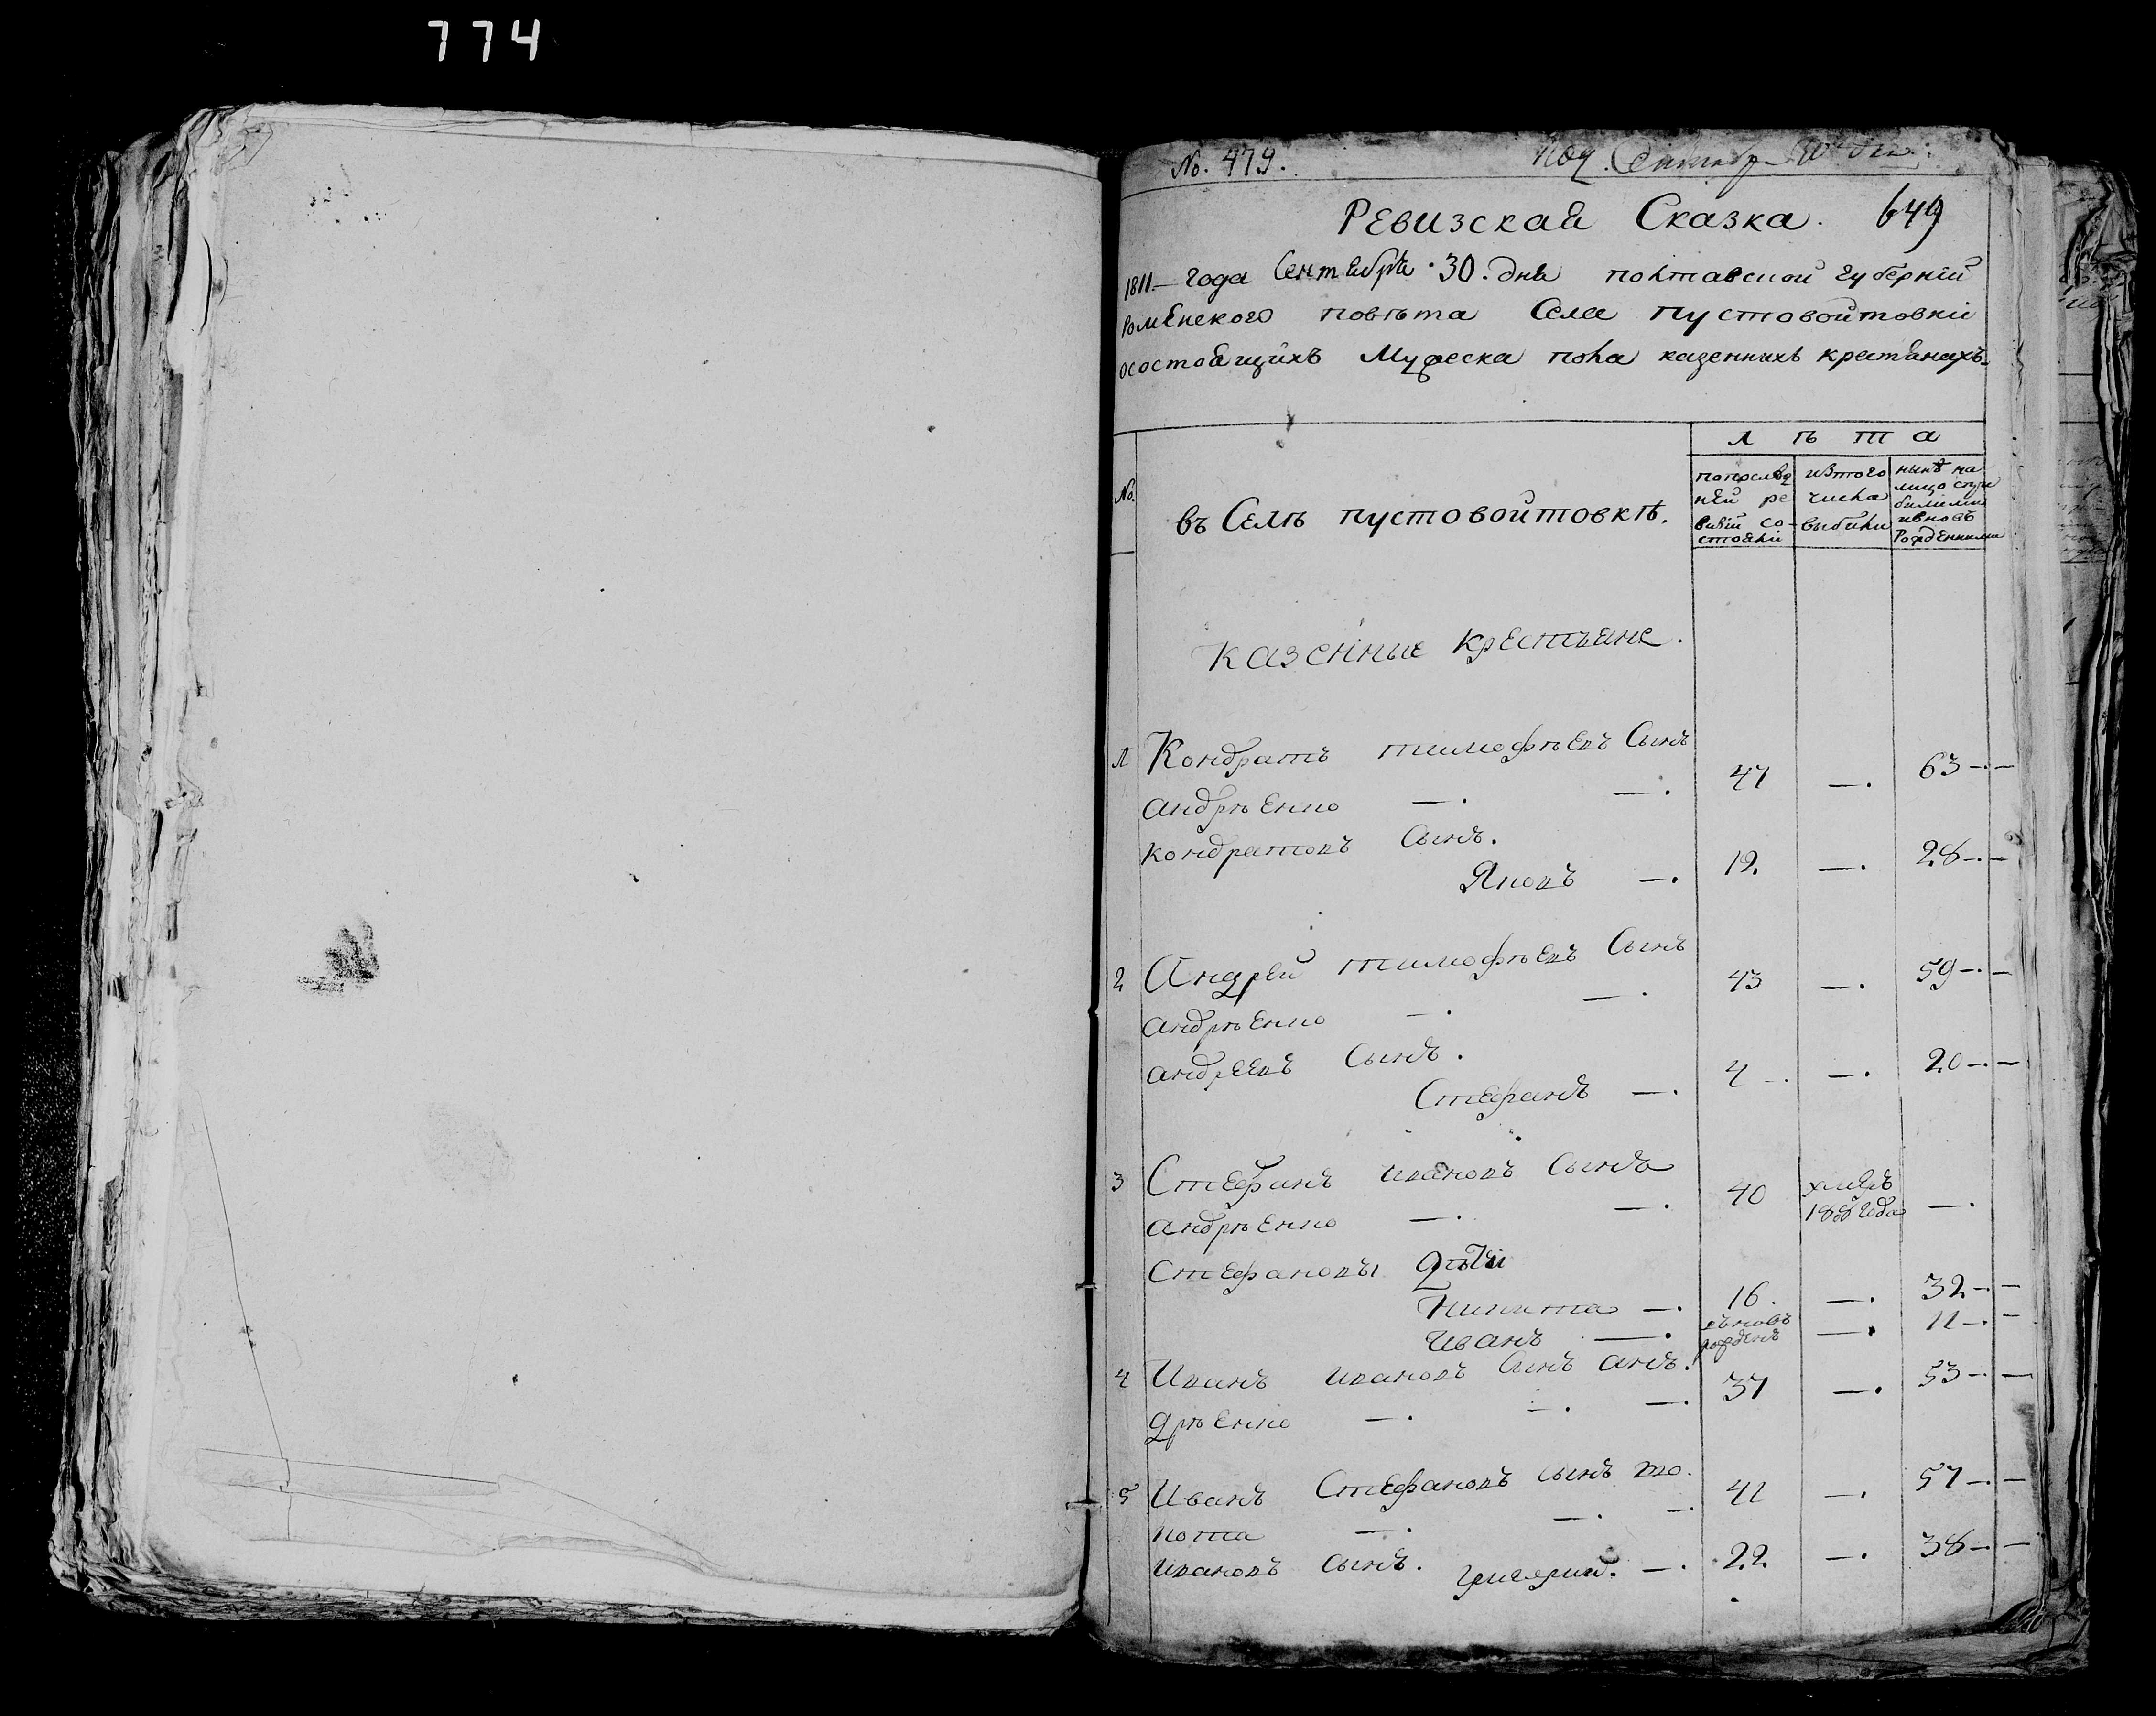 774
No. 479.
649
Ревизская Сказка.
1811 года Сентября 30. дня полтавской губернїи
роменского повѣта Села пустовойтовкїи
осостоящихъ Мужеска пола казенныхъ крестьянахъ
Л ѣ т а
No.
въ Селѣ пустовойтовкѣ.
попослѣд
ней ре
визїи со-
стояли
изтого
числа
выбили
нынѣ на
лицо
ивновь
Рожденними
казенные крестьяне.
1 Кондратъ тимофѣевъ Сынъ
андрѣенко —. —. 47 —. 63 —.—
кондратовъ Сынъ.
Яковъ —. 12. —. 28 —.—
2 Андрей тимофѣевъ Сынъ
андрѣенко —. —. 43 —. 59 —.—
андреевъ Сынъ.
Стефанъ —. 4 —. —. 20 —.—
3 Стефанъ ивановъ Сынъ
андрѣенко —. —. 40 умеръ —.
года
Стефановы дѣти
Никита —. 16. —. 32 —.—
Иванъ —. вновь рожденъ —. 11 —.—
4 Иванъ ивановъ Сынъ ан.
дрѣенко —. —. —. 37 —. 53 —.—
5 Иванъ Стефановъ сынъ
—. —. —. 41 —. 57 —.—
ивановъ сынъ. григорий. —. 22. —. 38 —.—